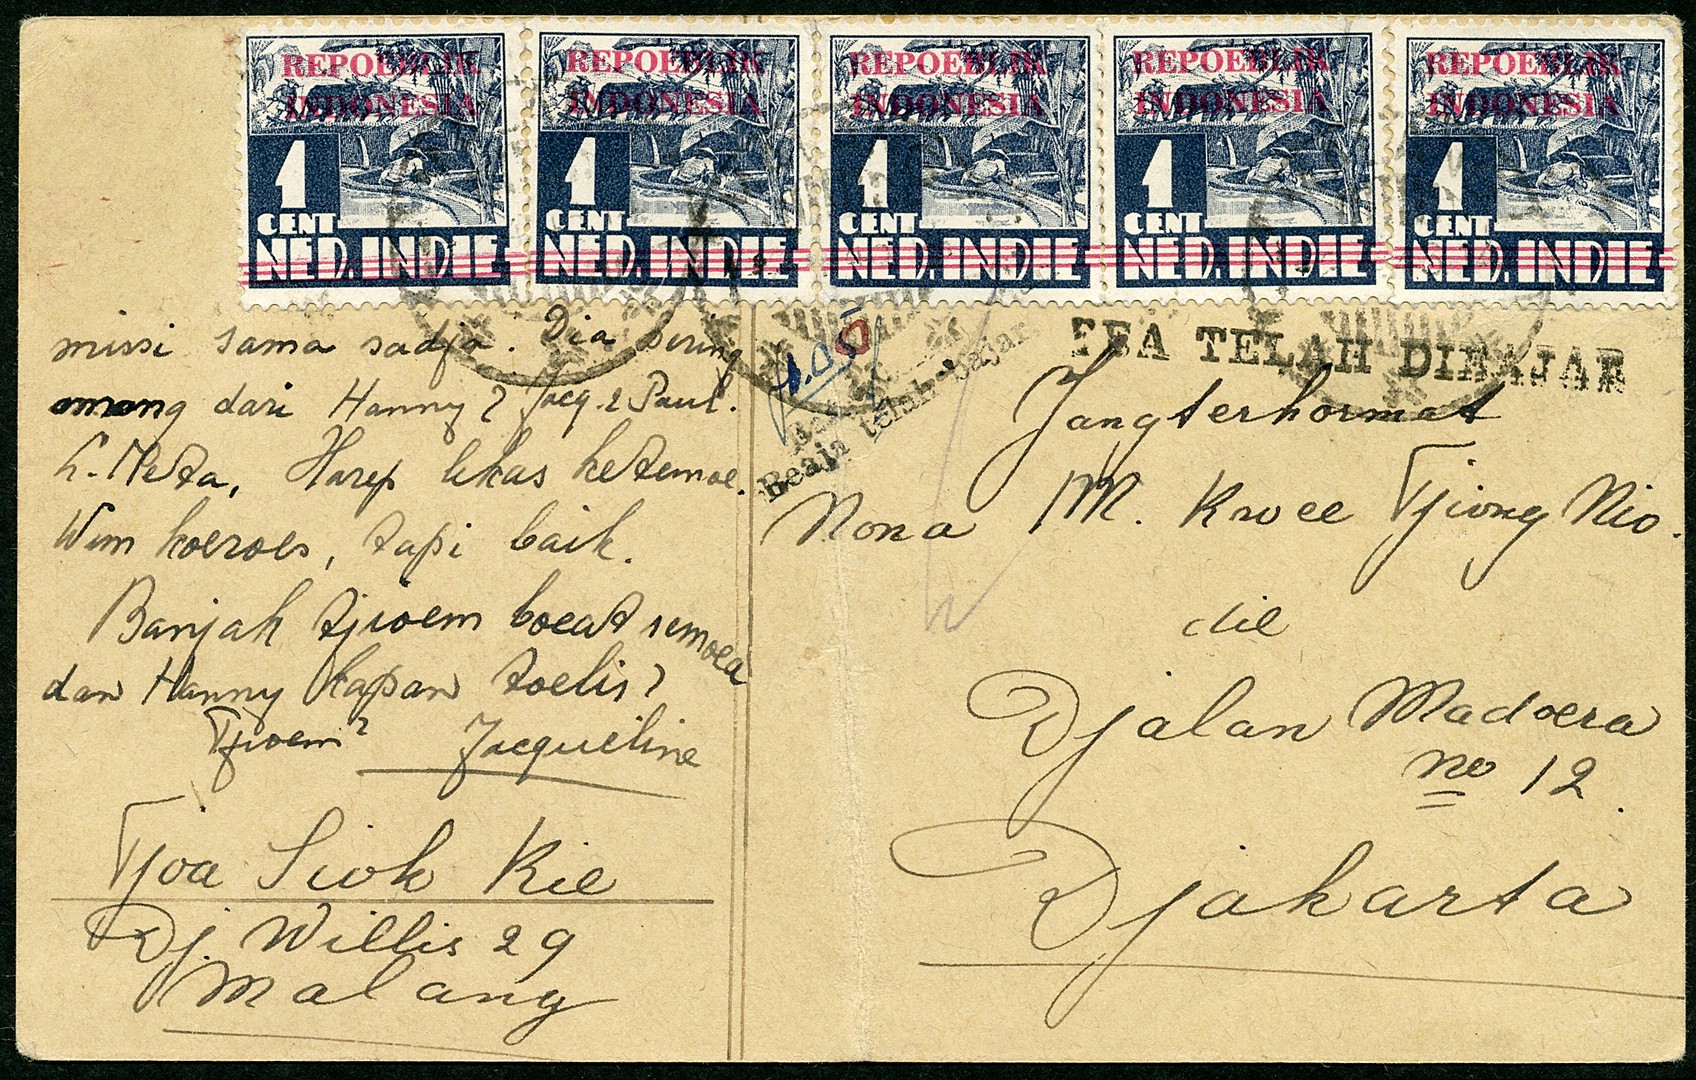 REPOEBLIK INDONESIA
1 CENT
NED. INDIE
REPOEBLIK INDONESIA
1 CENT
NED. INDIE
REPOEBLIK INDONESIA
1 CENT
NED. INDIE
REPOEBLIK INDONESIA
1 CENT
NED. INDIE
REPOEBLIK INDONESIA
1 CENT
NED. INDIE
missi sama sadja. Dia sering
omong dari Hanny? Jacq. ? Paul.
L. Meta, Harep lekas ketemoe.
Wim koeroes, tapi baik.
Banjak tjioem boeat semoea
dan Hanny kapan toelis?
Tjioem? Jacqueline
Tjoa Siok Kie
Dj. Willis 29
Malang
TELAH DIBAJAR
Beaja telah bajar
Jangterhormat
Nona M. Kwee Tjiong Nio.
die
Djalan Madoera
no 12.
Djakarta